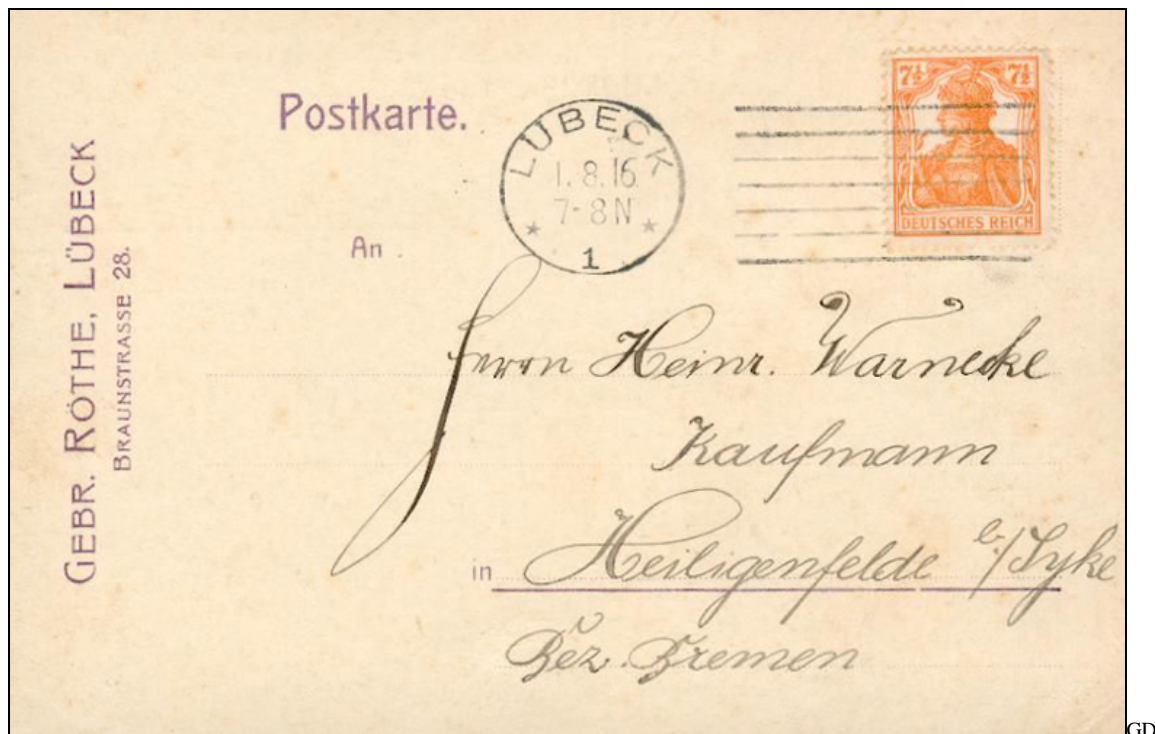 Postkarte.
GEBR. RÖTHE, LÜBECK
BRAUNSTRASSE 28.
LÜBECK
1.8.16.
7-8 N
* *
1
7½ 7½
DEUTSCHES REICH
An
Herrn Heinr. Warnecke
Kaufmann
in Heiligenfelde b./Syke
Bez. Bremen
GD